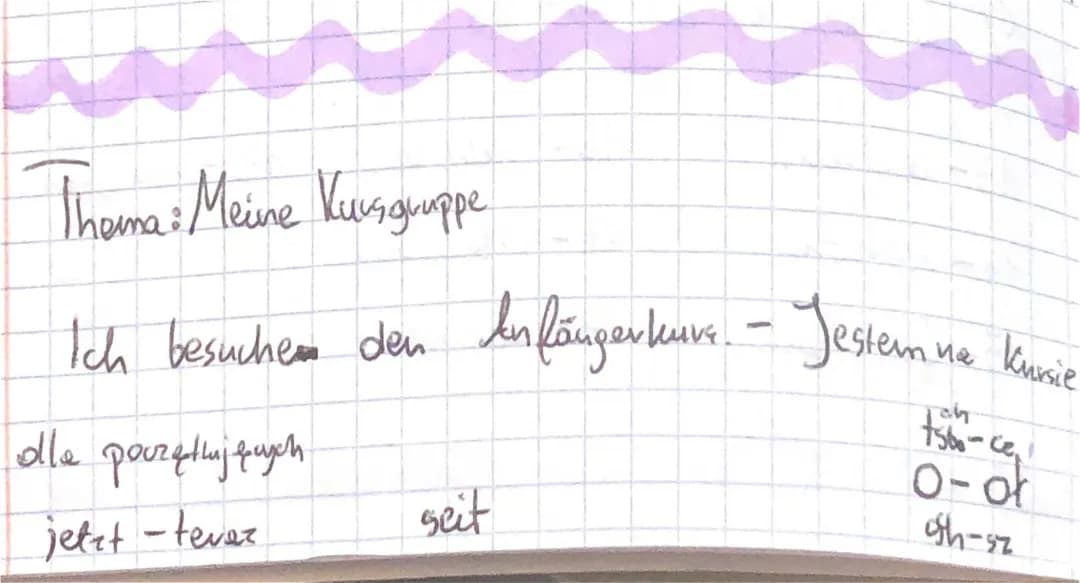 Thema: Meine Kursgruppe
Ich besuche den Anfängerkurs. - Jestem na kursie
dla początkujących
jetzt - teraz seit
O - 
sz